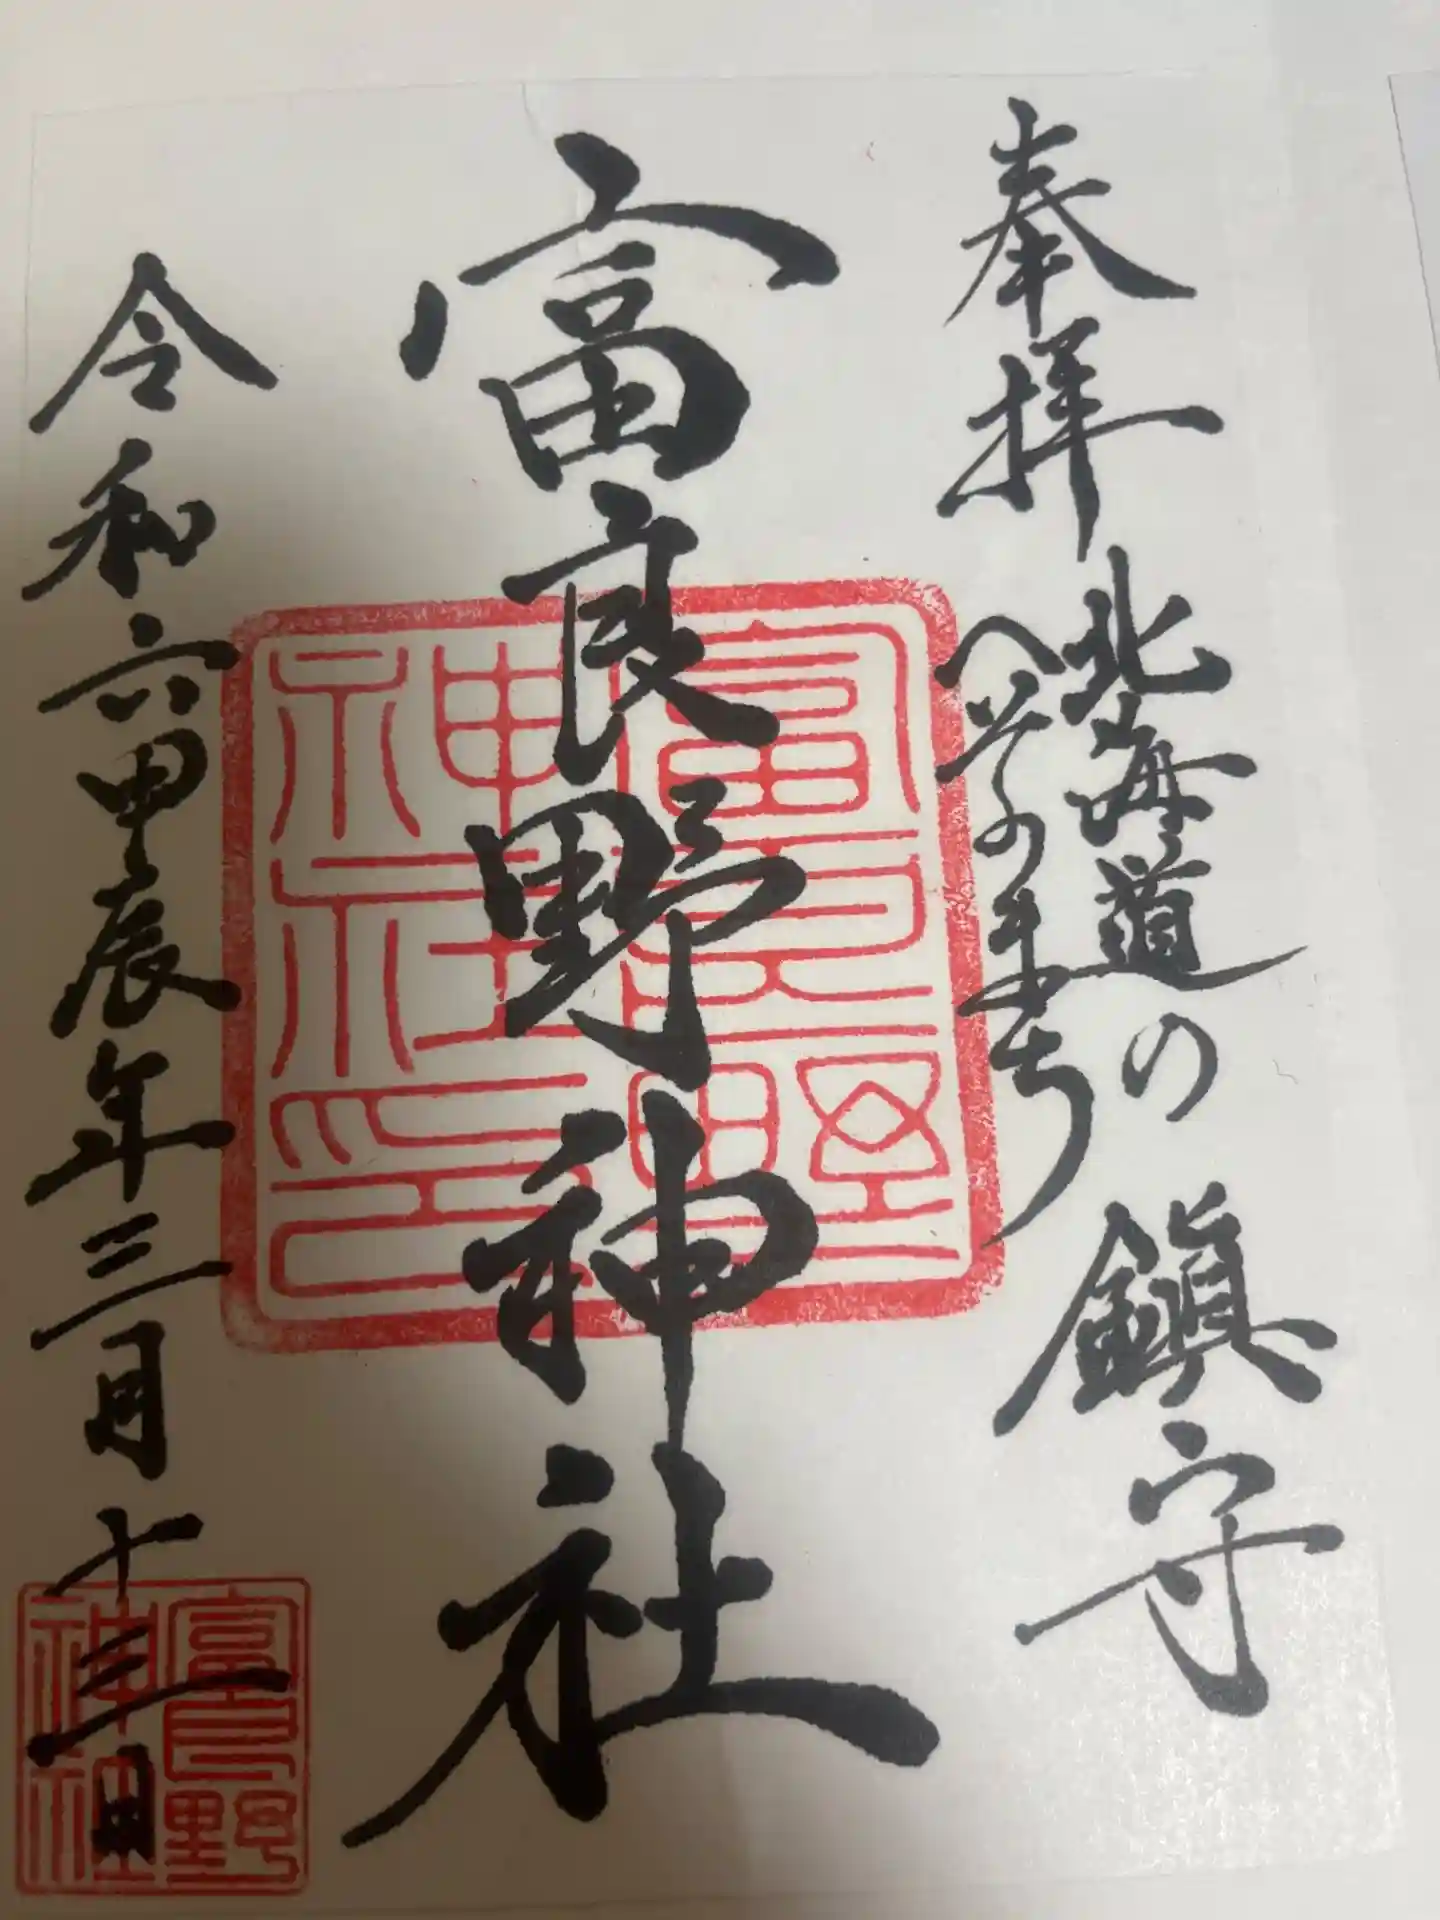 奉拝
北海道の
へそのまち
鎮守
富良野神社
令和六甲辰年三月十三日
富良野
神社印
富良野
神社